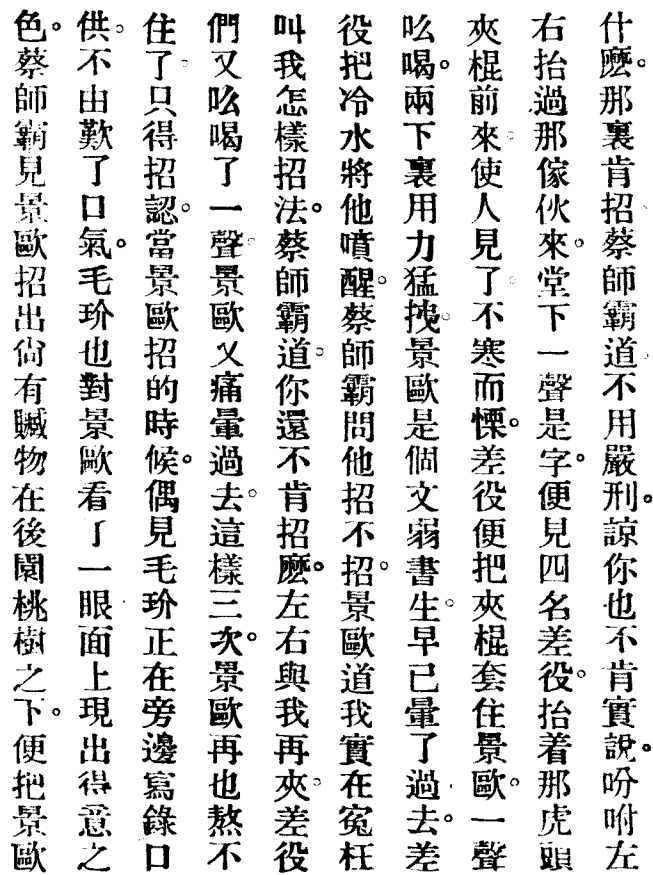 什麽。那裏肯招蔡師霸道不用嚴刑。諒你也不肯實說。吩咐左
右抬過那傢伙來。堂下一聲是字。便見四名差役。抬着那虎頭
夾棍前來。使人見了。不寒而慄。差役便把夾棍套住景歐。一聲
吆喝。兩下裏用力猛㧜。景歐是個文弱書生。早已暈了過去。差
役把冷水將他噴醒。蔡師霸問他招不招。景歐道我實在寃枉
叫我怎樣招法。蔡師霸道。你還不肯招麽。左右與我再夾。差役
們又吆喝了一聲。景歐又痛暈過去。這樣三次。景歐再也熬不
住了只得招認。當景歐招的時候。偶見毛玠正在旁邊寫錄口
供。不由歎了口氣。毛玠也對景歐看了一眼。面上現出得意之
色。蔡師霸見景歐招出尙有贓物在後園桃樹之下。便把景歐